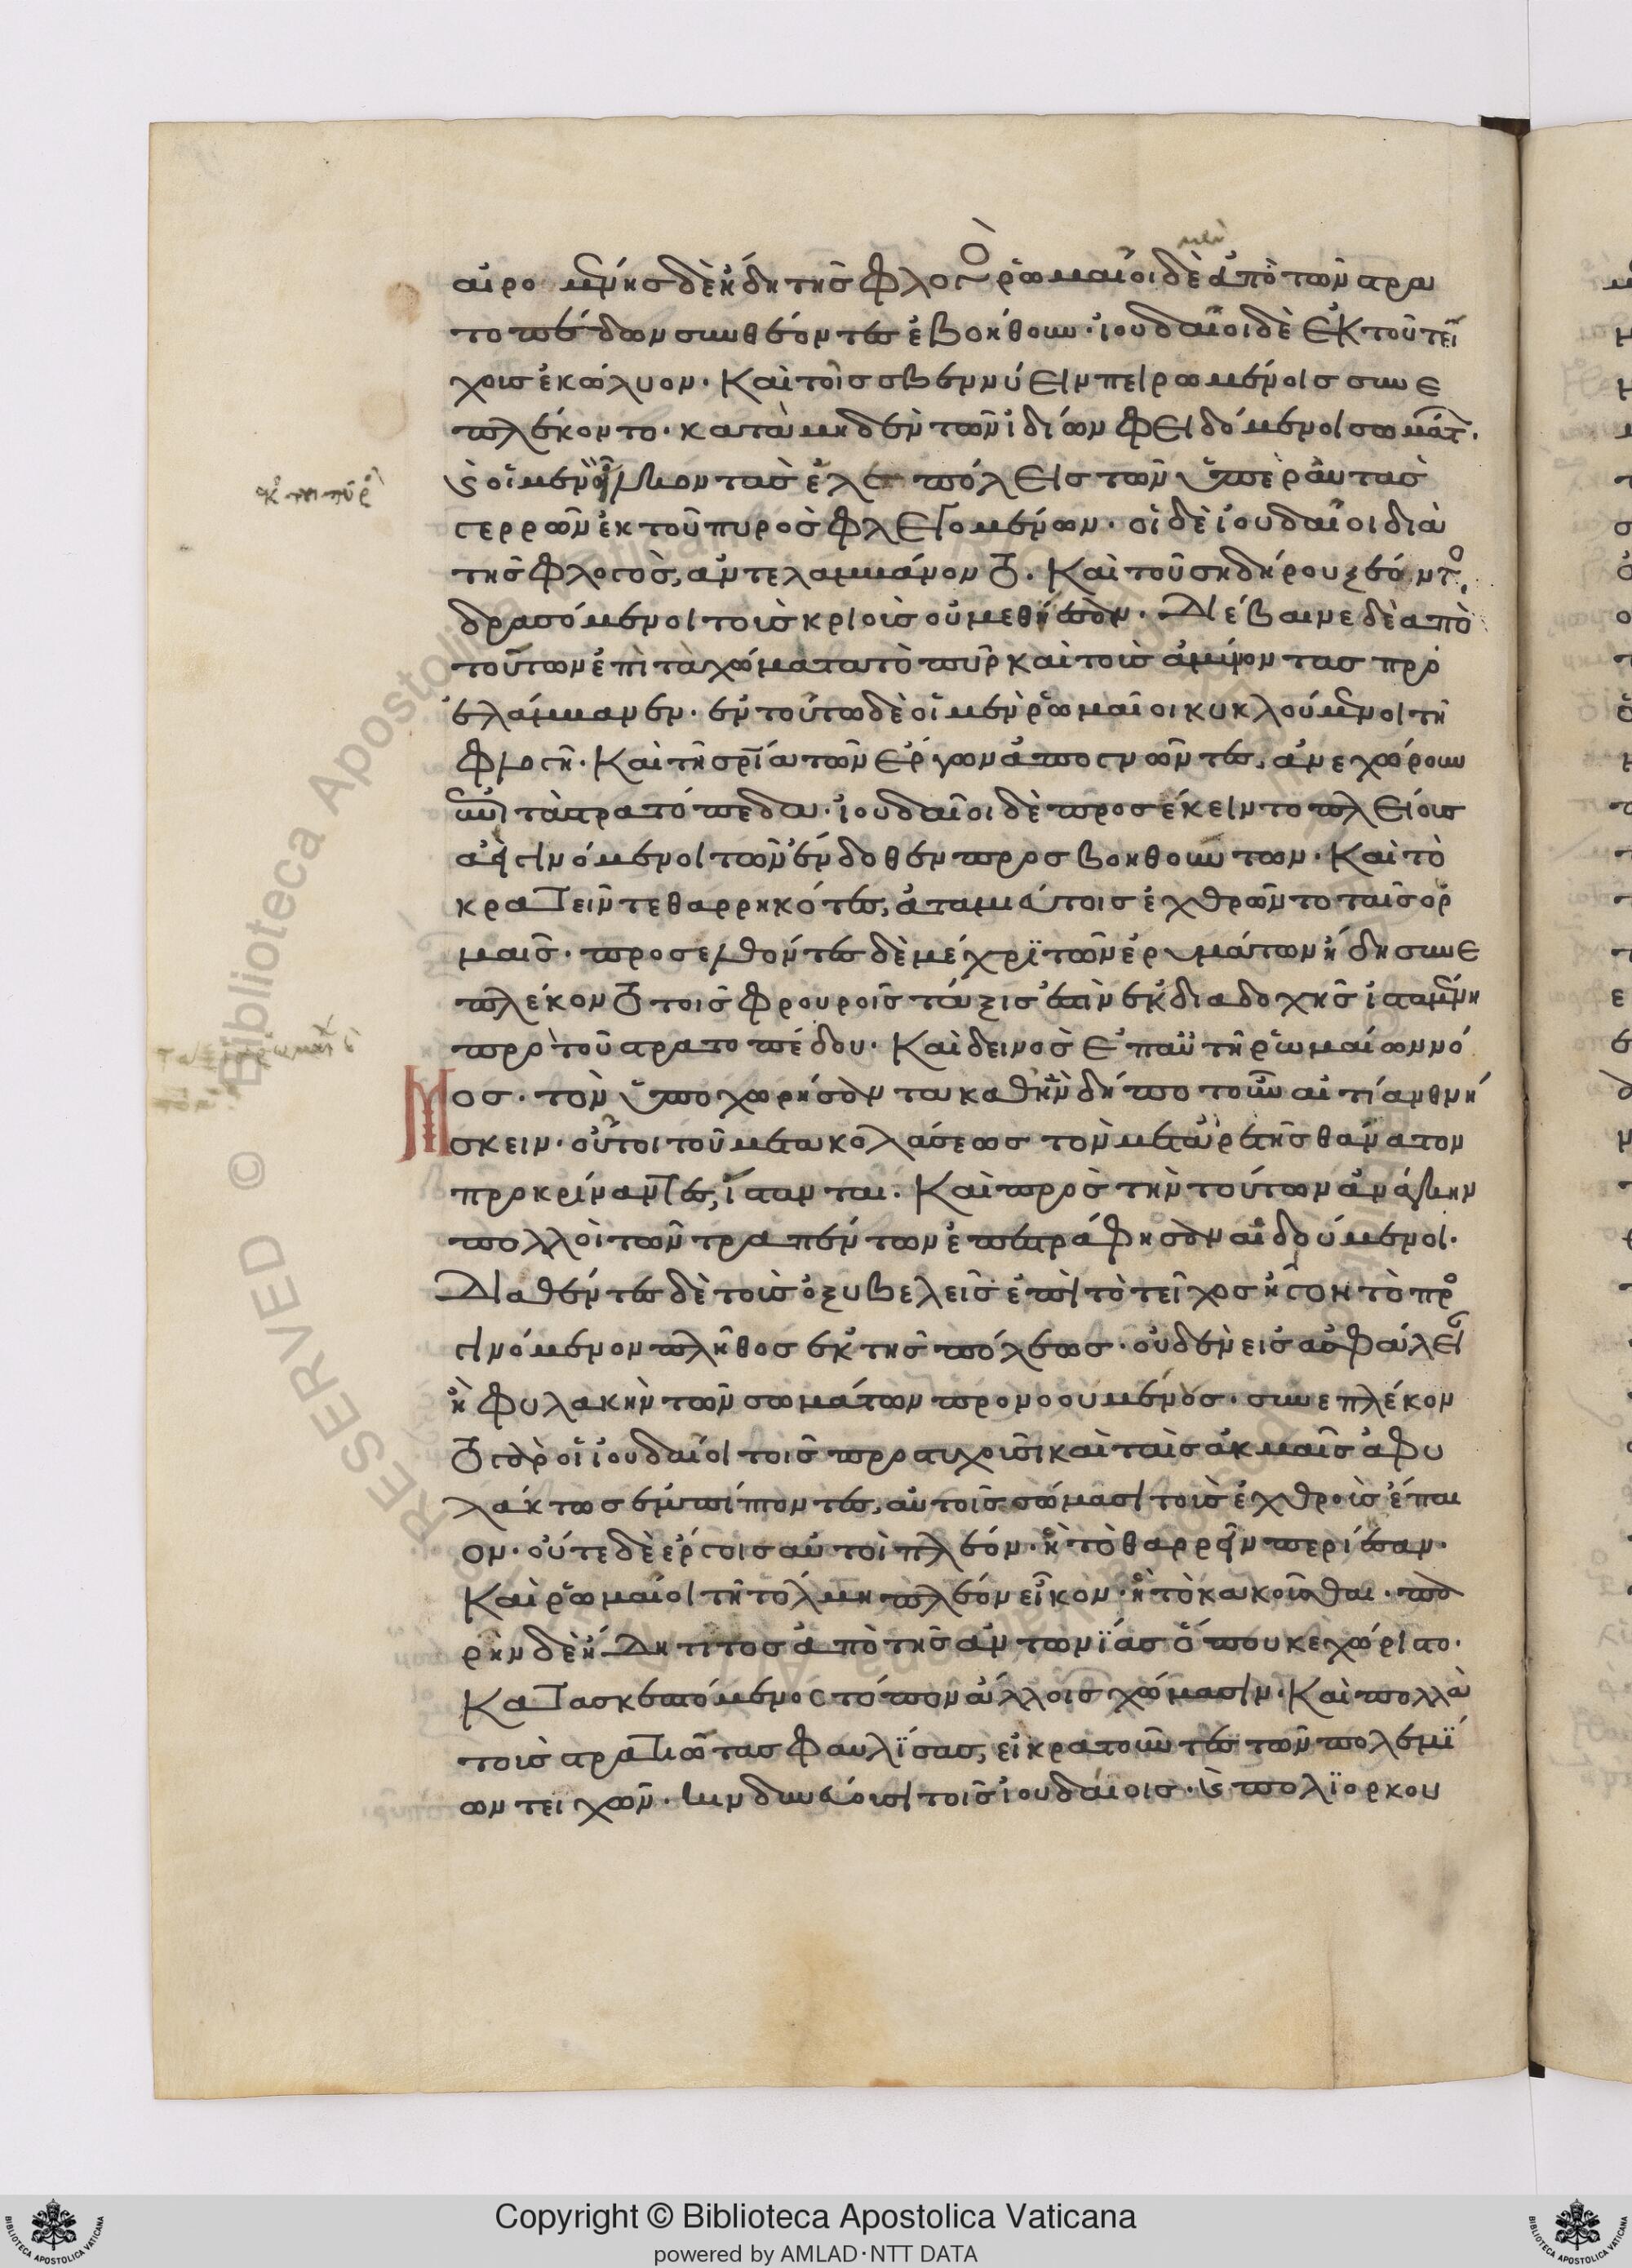 αἰρομένης δὲ ἤδη τῆς φλογὸς ῥωμαῖοι δὲ ἀπὸ τῶν στρα
μὲν
τοπέδων συνθέοντες ἐβοήθουν· ἰουδαῖοι δὲ ἐκ τοῦ τεί
χους ἐκώλυον· καὶ τοῖς σβεννύειν πειρωμένοις συνε
πλέκοντο· κατὰ μηδὲν τῶν ἰδίων φειδόμενοι σωμάτ
καὶ οἱ μὲν εἷλκον τὰς ἑλεπόλεις τῶν ὑπὲρ αὐτὰς
γέρρων ἐκ τοῦ πυρὸς φλεγομένων· οἱ δὲ ἰουδαῖοι διὰ
τῆς φλογὸς, ἀντελαμβάνοντο. καὶ τοῦ σηδήρου ζέοντος
δρασόμενοι τοὺς κριοὺς οὐ μεθίεσαν· διέβαινε δὲ ἀπὸ
τούτων ἐπὶ τὰ χώματα τὸ πῦρ καὶ τοὺς ἀμύνοντας προ
ελάμβανεν· ἐν τούτω δὲ οἱ μὲν ῥωμαῖοι κυκλούμενοι τῆ
φλογῆ· καὶ τὴν σρίαν τῶν ἔργων ἀπογνῶντες, ἀνεχώρουν
ἐπὶ τὰ στρατόπεδα· ἰουδαῖοι δὲ προσέκειντο πλείους
ἀεὶ γινόμενοι τῶν ἔνδοθεν προσβοηθούντων· καὶ τὸ
κρατεῖν τεθαρρηκότες, ἀταμιεύτοις ἐχθρῶντο ταῖς ὁρ
μαῖς· προσελθόντες δὲ μέχρι τῶν ἐρυμάτων ἤδη συνε
πλέκοντο τοῖς φρουροῖς τάξις ἐστὶν ἐκ διαδοχῆς ἱσταμένη
πρὸ τοῦ στρατοπέδου· καὶ δεινὸς ἐπ' αὐτῆ ῥωμαίων νό
Μος· τὸν ὑποχωρήσαντα καθ' ἣν δήποτ' οὖν αἰτίαν θνή
σκειν· οὗτοι τοῦ μετὰ κολάσεως τὸν μετ' ἀρετῆς θάνατον
προκρίναντες, ἵστανται. καὶ πρὸς τὴν τούτων ἀνάγκην
πολλοὶ τῶν τραπέντων ἐπεστράφησαν αἰδούμενοι.
διαθέντες δὲ τοὺς ὀξυβελεῖς ἐπὶ τὸ τεῖχος ἦγον τὸ προ
γινόμενον πλῆθος ἐκ τῆς πόλεως· οὐδὲν εἰς ἀσφάλει
ἢ φυλακὴν τῶν σωμάτων προνοούμενος· συνεπλέκον
το γὰρ οἱ ἰουδαῖοι τοῖς προστυχοῦσι καὶ ταῖς ἀκμαῖς ἀφυ
λάκτως ἐμπίπτοντες, αὐτοῖς σώμασι τοὺς ἐχθροὺς ἔπαι
ον· οὔτε δὲ ἔργοις αὐτοὶ πλέον· ἢ τὸ θαρρεῖν περιῆσαν·
καὶ ῥωμαῖοι τῆ τόλμη πλέον εἶκον· ἢ τὸ κακοῦσθαι· πα
ρῆν δὲ ἤδη τίτος ἀπὸ τῆς ἀντωνίας ὅπου κεχώριστο·
κατασκεπτόμενος τόπον ἄλλοις χώμασιν· καὶ πολλὰ
τοὺς στρατιώτας φαυλίσας, εἰ κρατοῦντες τῶν πολεμί
ων τειχῶν· κινδυνεύουσι τοῖς ἰουδαίοις· καὶ πολιορκου